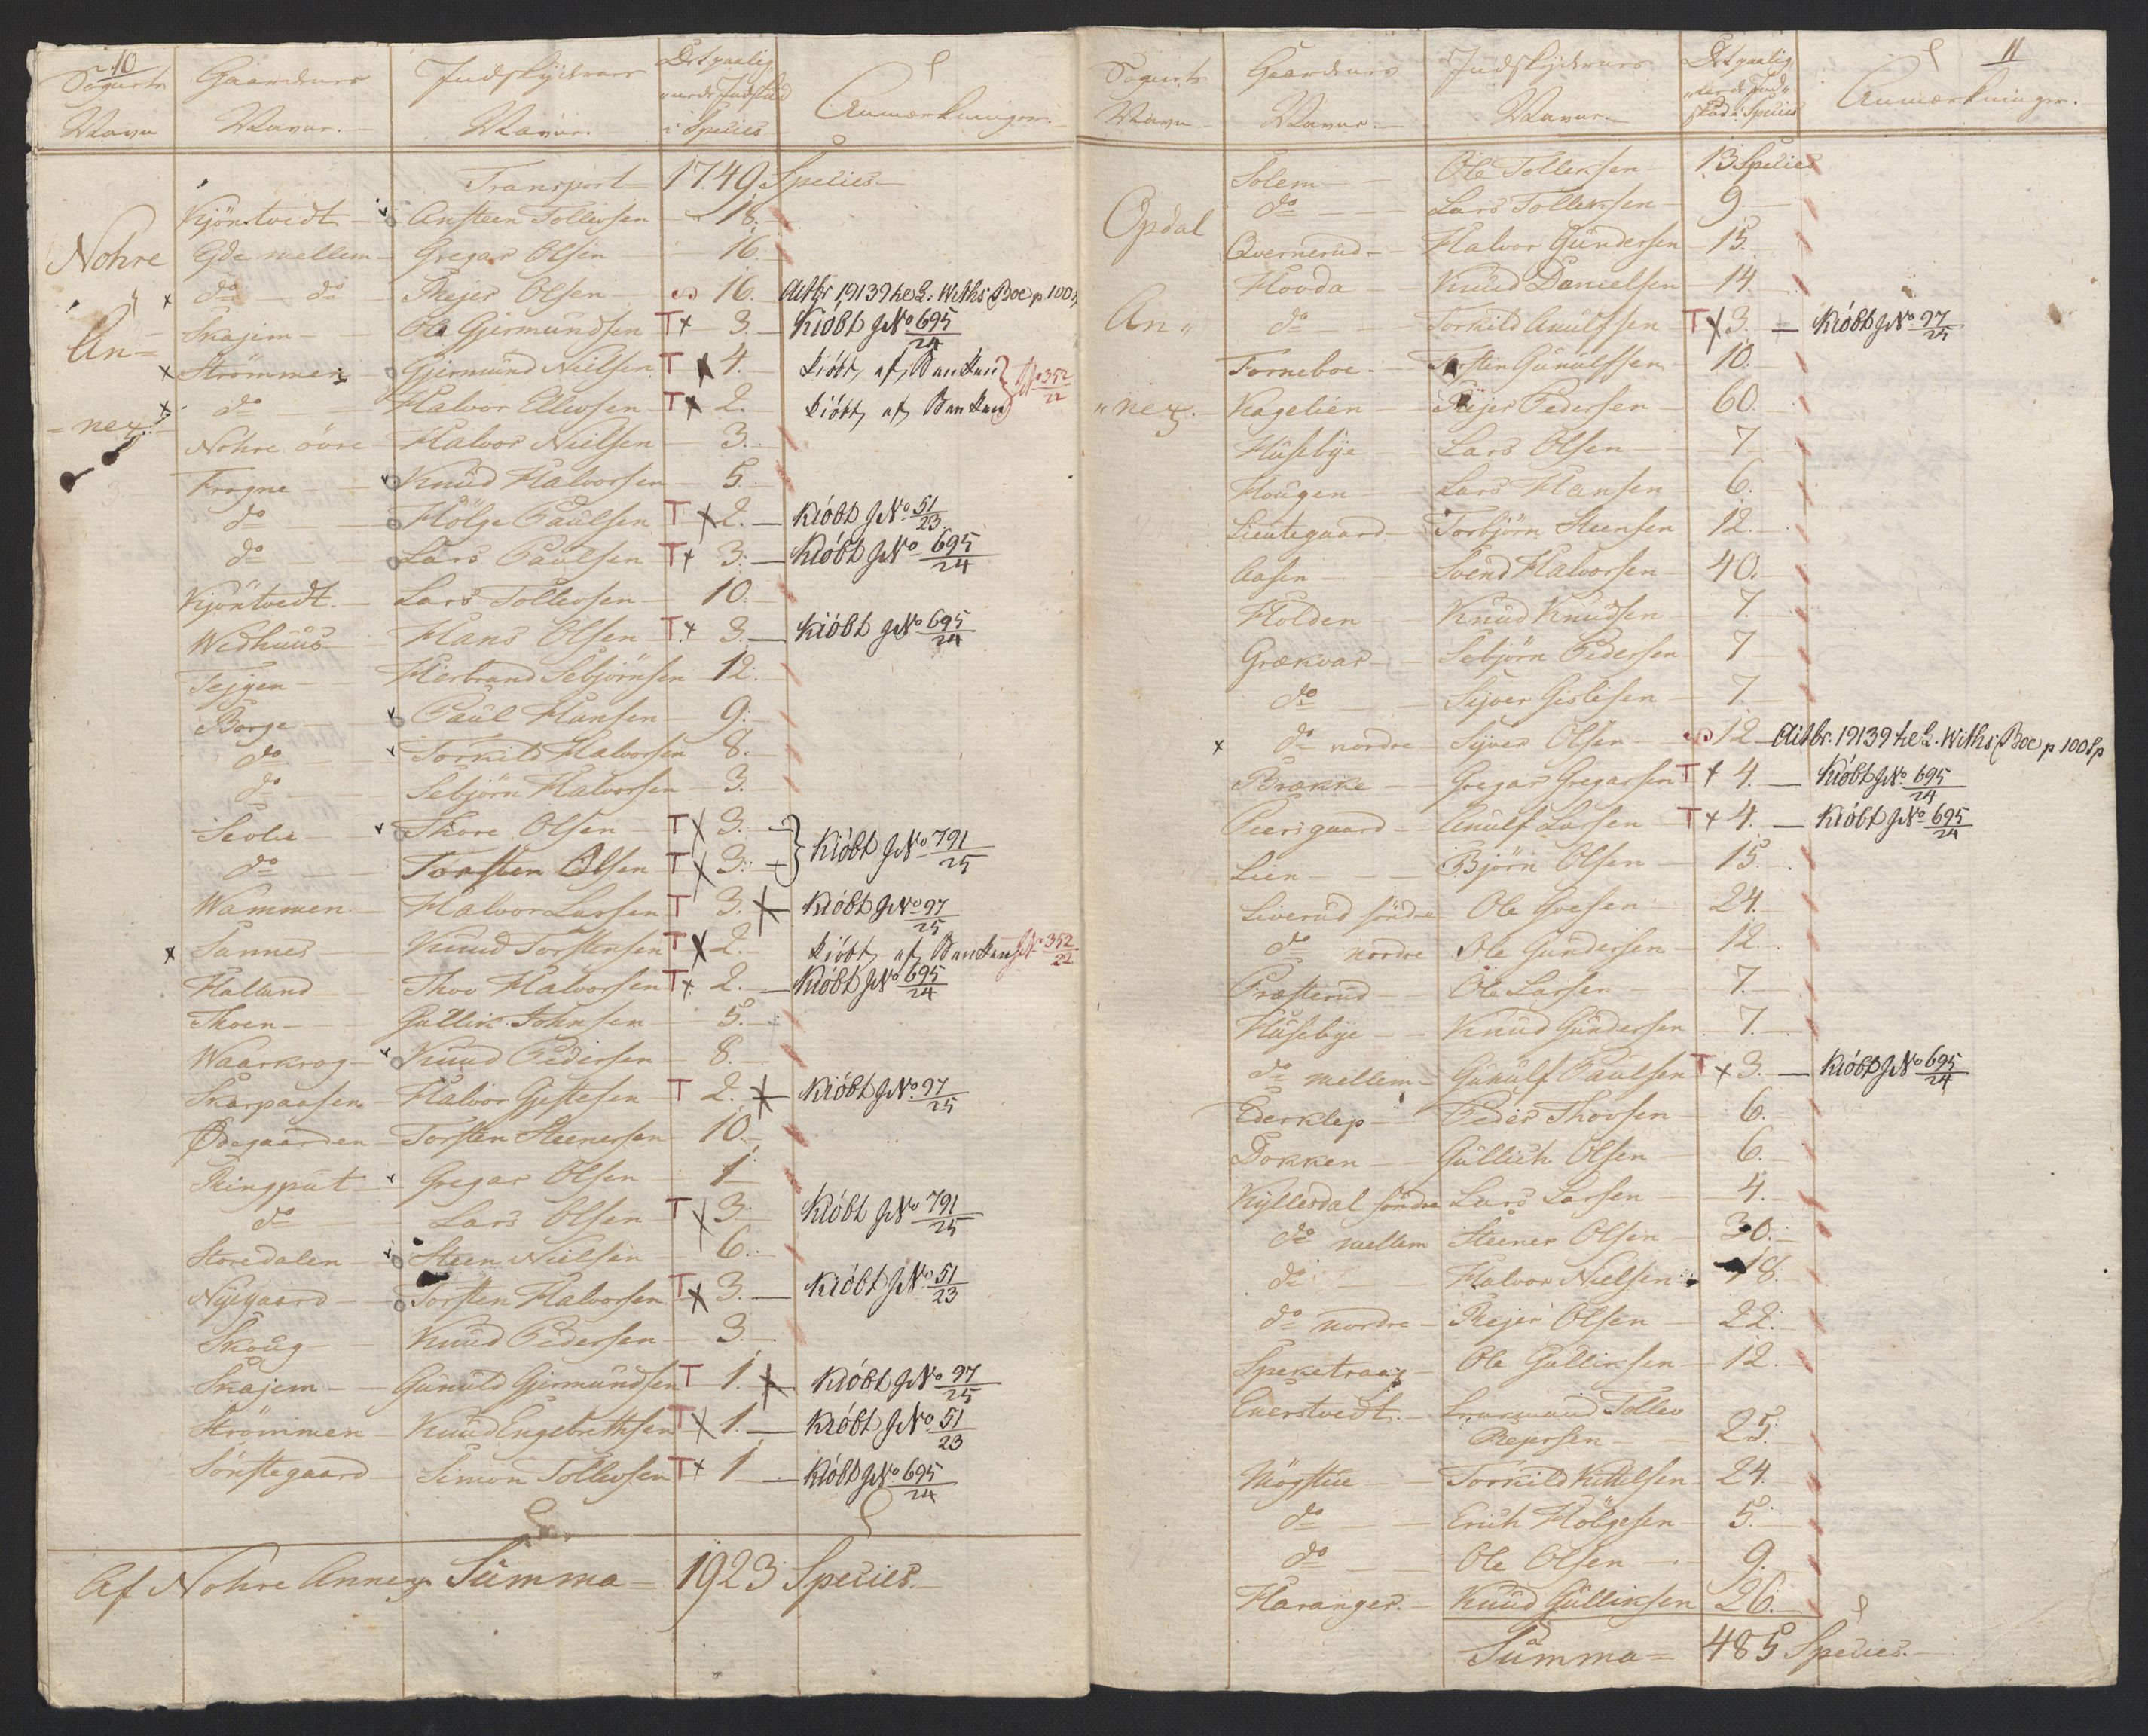 10
Sognets Navn | Gaardenes Navne. | Indskyderners Navne. | Det paalignede Indskud i Species | Anmærkninger.
Transport = 1749 Species
Nohre An= =nex.
Kjöntvedt — Ansteen Tollevsen — 18.
Eyde mellem — Gregar Olsen — 16.
do — do — Rejer Olsen — 16. Aitbr 19139 he L. Withs Boe p 100 Sp
Skajem — Ole Gjermundsen T x 3. — Kiöbt J No 695/24
x Strömmen — Gjermund Nielsen T x 4. — kiöbt af Banken } J No 352/22
x do — Halvor Ellevsen T x 2. kiöbt af Banken
Nohre övre — Halvor Nielsen — 3.
Frogne — Knud Halvorsen — 5.
do — Hölge Paulsen T x 2. — Kiöbt J No 51/23
do — Lars Paulsen T x 3. — Kiöbt J No 695/24
Kjöntvedt — Lars Tollevsen — 10.
Wedhuus — Hans Olsen T x 3. — Kiöbt J No 695/24
Tejgen — Herbrand Sebjörnsen 12.
Borge — Paul Hansen — 9.
do — Torkild Halvorsen 8.
do — Sebjörn Halvorsen — 3.
Sevlie — Thore Olsen — T x 3. } Kiöbt J No 791/25
do — Torsten Olsen T x 3.
Wammen — Halvor Larsen T 3. x — Kiöbt J No 97/25
x Sannes — Knud Torstensen T x 2. kiöbt af Banken J No 352/22
Halland — Thov Halvorsen T x 2. — Kiöbt J No 695/24
Thoen — Gullik Johnsen — 5.
Waarkrog — Knud Pedersen — 8.
Skarpaasen — Halvor Gjestesen T 2. x — Kiöbt J No 97/25
Ödegaarden — Torsten Steenersen — 10.
Ringput — Gregar Olsen — 1
do — Lars Olsen T x 3. Kiöbt J No 791/25
Storedalen — Steen Nielsen — 6.
Nÿegaard — Torsten Halvorsen T x 3. — Kiöbt J No 51/23
Skoug — Knud Pedersen — 3.
Skajem — Gunuld Gjermundsen T 1. x Kiöbt J No 97/25
Strömmen — Knud Engebrethsen T x 1. — Kiöbt J No 51/23
Sönstegaard — Simon Tollevsen T x 1 — Kiöbt J No 695/24
Af Nohre Annex Summa = 1923 Species.
11
Sognets Navn | Gaardenes Navne. | Indskyderners Navne. | Det paalignende Indskud i Species | Anmærkninger.
Opdal An" "nex.
Solem — Ole Tollevsen — 13 Species
do — Lars Tollevsen — 9
Qvernerud — Halvor Gundersen — 15.
Hovda — Knud Danielsen — 14.
do — Torkild Anulfsen T x 3. — Kiöbt J No 97/25
Forneboe — Torsten Gunulfsen — 10.
Kagelien — Rejer Pedersen — 60.
Husebÿe — Lars Olsen — 7
Hougen — Lars Hansen — 6.
Lientegaard — Torbjörn Steensen — 12.
Aasen — Svend Halvorsen — 40.
Holden — Knud Knudsen — 7.
Grækvar — Sebjörn Pedersen — 7
do — Syver Gislesen — 7.
x do nordre — Syver Olsen — 12 — Aitbr. 19139 he L. Withs Boe p 100 Sp
Brække — Gregar Gregarsen T x 4. — Kiöbt J No 695/24
Peersgaard — Anulf Larsen T x 4. — Kiöbt J No 695/24
Lien — Björn Olsen — 15.
Liverud söndre — Ole Goesen — 24.
do nordre — Ole Gundersen — 12.
Præsterud — Ole Larsen — 7.
Husebÿe — Knud Gundersen — 7.
do mellem — Gunulf Paulsen T x 3. — Kiöbt J No 695/24
Ederklep — Peder Thovsen — 6.
Dokken — Gullich Olsen — 6.
Kÿllesdal söndre — Lars Larsen — 4.
do mellem — Steener Olsen — 30.
do — Halvor Nielsen — 18.
do nordre — Rejer Olsen — 22.
Speketraag — Ole Gulliksen — 12.
Enerstvedt — Tollev
Rejersen — 25.
Mögstue — Torkild Kittelsen — 24.
do — Erich Hölgesen — 5.
do — Ole Olsen — 9.
Haranger — Knud Gulliksen 26.
Summa = 485 Species.